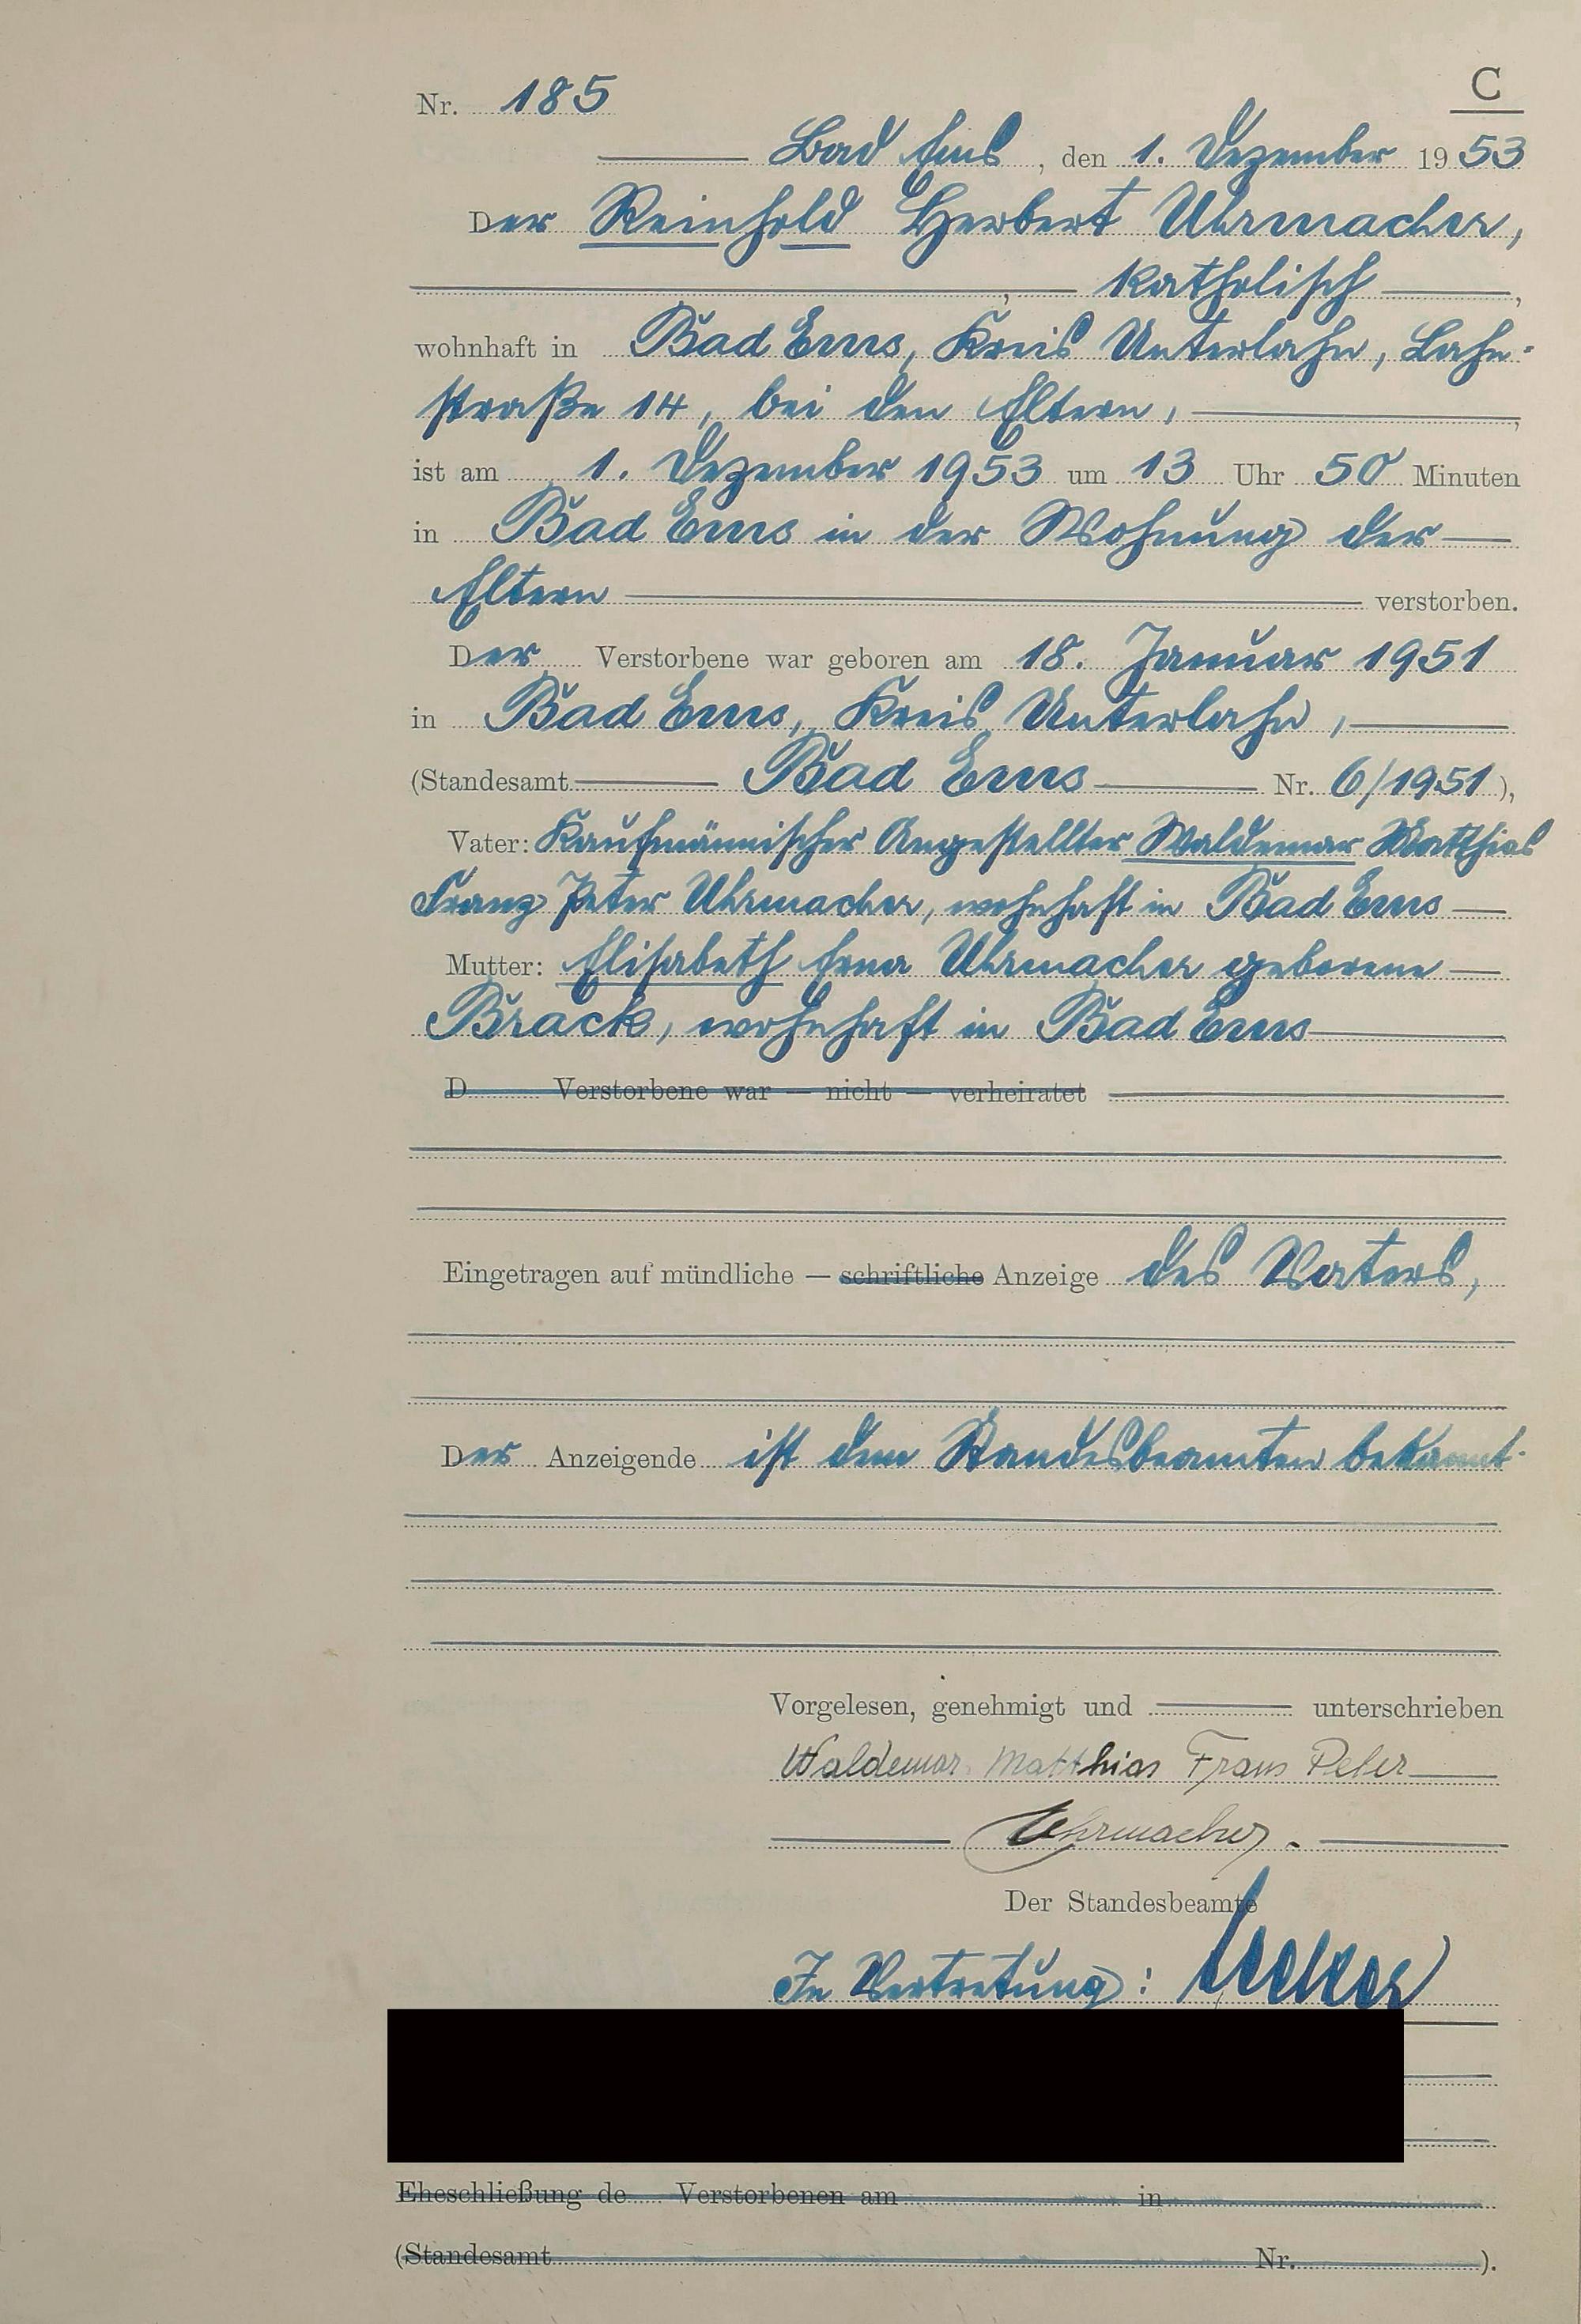 C
Nr. 185
Bad Ems, den 1. Dezember 1953
Der Reinhold Herbert Uhrmacher,
, katholisch,
wohnhaft in Bad Ems, Kreis Unterlahn, Lahn-
straße 14, bei den Eltern,
ist am 1. Dezember 1953 um 13 Uhr 50 Minuten
in Bad Ems in der Wohnung der
Eltern verstorben.
Der Verstorbene war geboren am 18. Januar 1951
in Bad Ems, Kreis Unterlahn,
(Standesamt Bad Ems Nr. 6/1951),
Vater: Kaufmännischer Angestellter Waldemar Matthias
Franz Peter Uhrmacher, wohnhaft in Bad Ems
Mutter: Elisabeth Erna Uhrmacher geborene
Brack, wohnhaft in Bad Ems
D Verstorbene war — nicht — verheiratet
Eingetragen auf mündliche — schriftliche Anzeige des Vaters,
Der Anzeigende ist dem Standesbeamten bekannt.
Vorgelesen, genehmigt und unterschrieben
Waldemar Matthias Franz Peter
Uhrmacher.
Der Standesbeamte
In Vertretung:
Eheschließung de Verstorbenen am in
(Standesamt Nr. ).